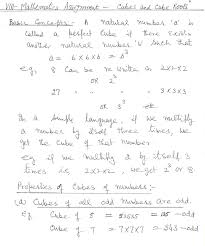 VIII - Mathematics Assignment - Cubes and Cube Roots
Basic Concepts:- A natural number 'a' is
called a perfect cube if there exists
another natural number 'b' such that
a = b×b×b = b³
e.g. 8 Can be re written as 2×2×2
or 2³
27 " " 3×3×3
or 3³ etc
In a Simple language, if we multiply
a number by itself three times, we
get the cube of that number
e.g if we multiply 2 by itself 3
times i.e. 2×2×2, we get 2³ or 8
Properties of Cubes of numbers:-
(a) Cubes of all odd numbers are odd.
e.g. Cube of 5 = 5×5×5 = 125 - odd
Cube of 7 = 7×7×7 = 343 - odd